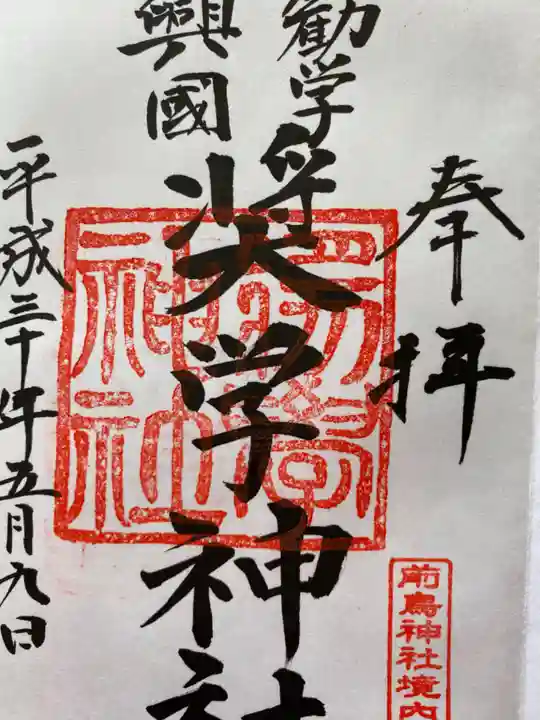 奉拝
勧学
興國
奨学神社
平成三十年五月九日
前鳥神社境内